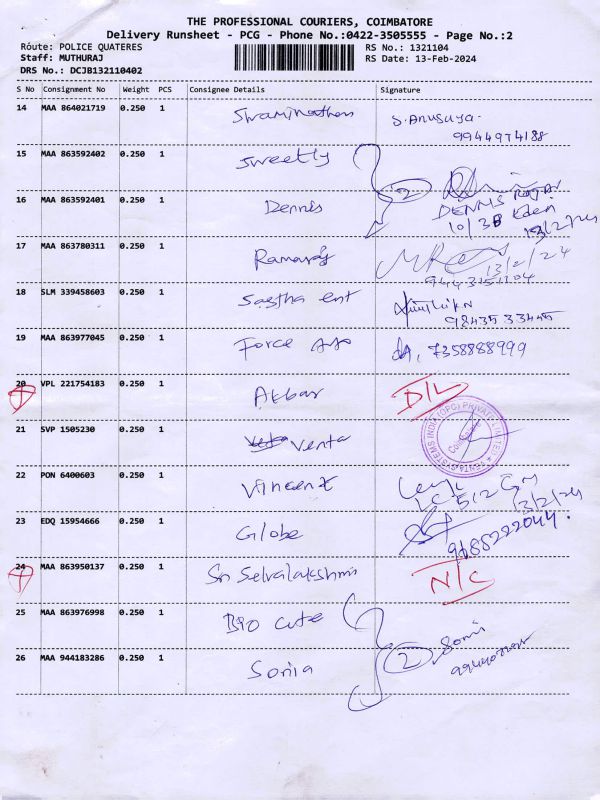 THE PROFESSIONAL COURIERS, COIMBATORE
Delivery Runsheet - PCG - Phone No.:0422-3505555 - Page No.:2
Route: POLICE QUATERES RS No.: 1321104
Staff: MUTHURAJ RS Date: 13-Feb-2024
DRS No.: DCJB132110402
S No Consignment No Weight PCS Consignee Details Signature
14 MAA 864021719 0.250 1 Swaminathan S.Anusuya
9944974188
15 MAA 863592402 0.250 1 Sweetly
2
16 MAA 863592401 0.250 1 Dennis DENNIS
10/3B Eden
13/2/24
17 MAA 863780311 0.250 1 Ramaraj 13/2/24
18 SLM 339458603 0.250 1 Sastha ent
98435 33445
19 MAA 863977045 0.250 1 Force 7358888999
20 VPL 221754183 0.250 1 Akbar D/L
21 SVP 1505230 0.250 1 Venta
VENTA SYSTEMS INDIA (OPC) PRIVATE LIMITED
Coimbatore
22 PON 6400603 0.250 1 Vincent
13/2/24
23 EDQ 15954666 0.250 1 Globe 9688222044.
24 MAA 863950137 0.250 1 Sri Selvalakshmi N/C
25 MAA 863976998 0.250 1 Bio Cute
26 MAA 944183286 0.250 1 Sonia 2 Soni